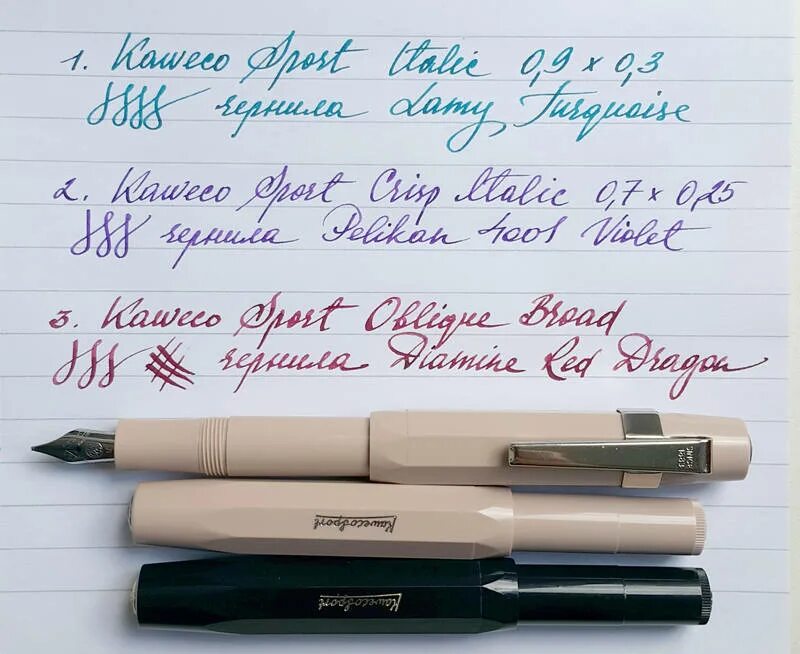 1. Kaweco Sport Italic 0,9 x 0,3
чернила Lamy Turquoise
2. Kaweco Sport Crisp Italic 0,7 x 0,25
чернила Pelikan 4001 Violet
3. Kaweco Sport Oblique Broad
чернила Diamine Red Dragon
SINCE
1883
KawecoSport
KawecoSport